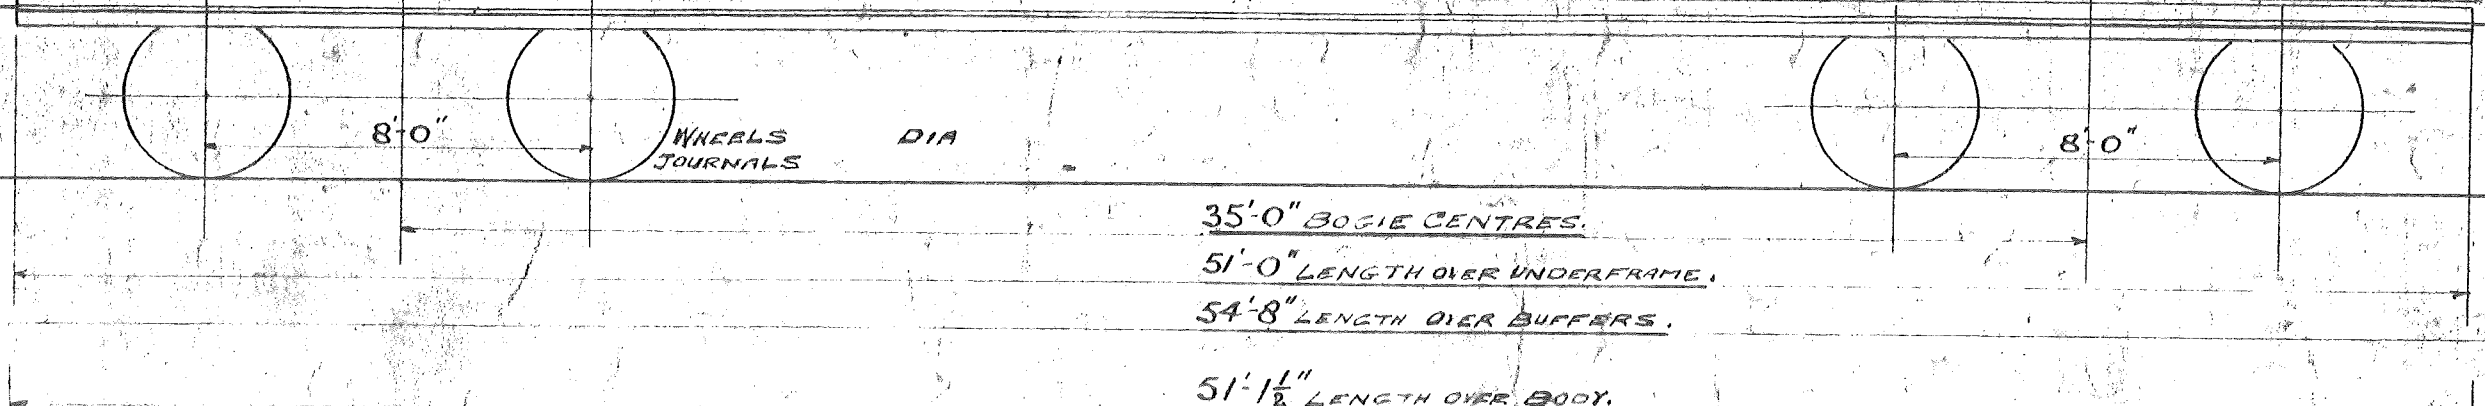 8'-0"
WHEELS DIA
JOURNALS
8'-0"
35'-0" BOGIE CENTRES.
51'-0" LENGTH OVER UNDERFRAME.
54'-8" LENGTH OVER BUFFERS.
51'-1½" LENGTH OVER BODY.